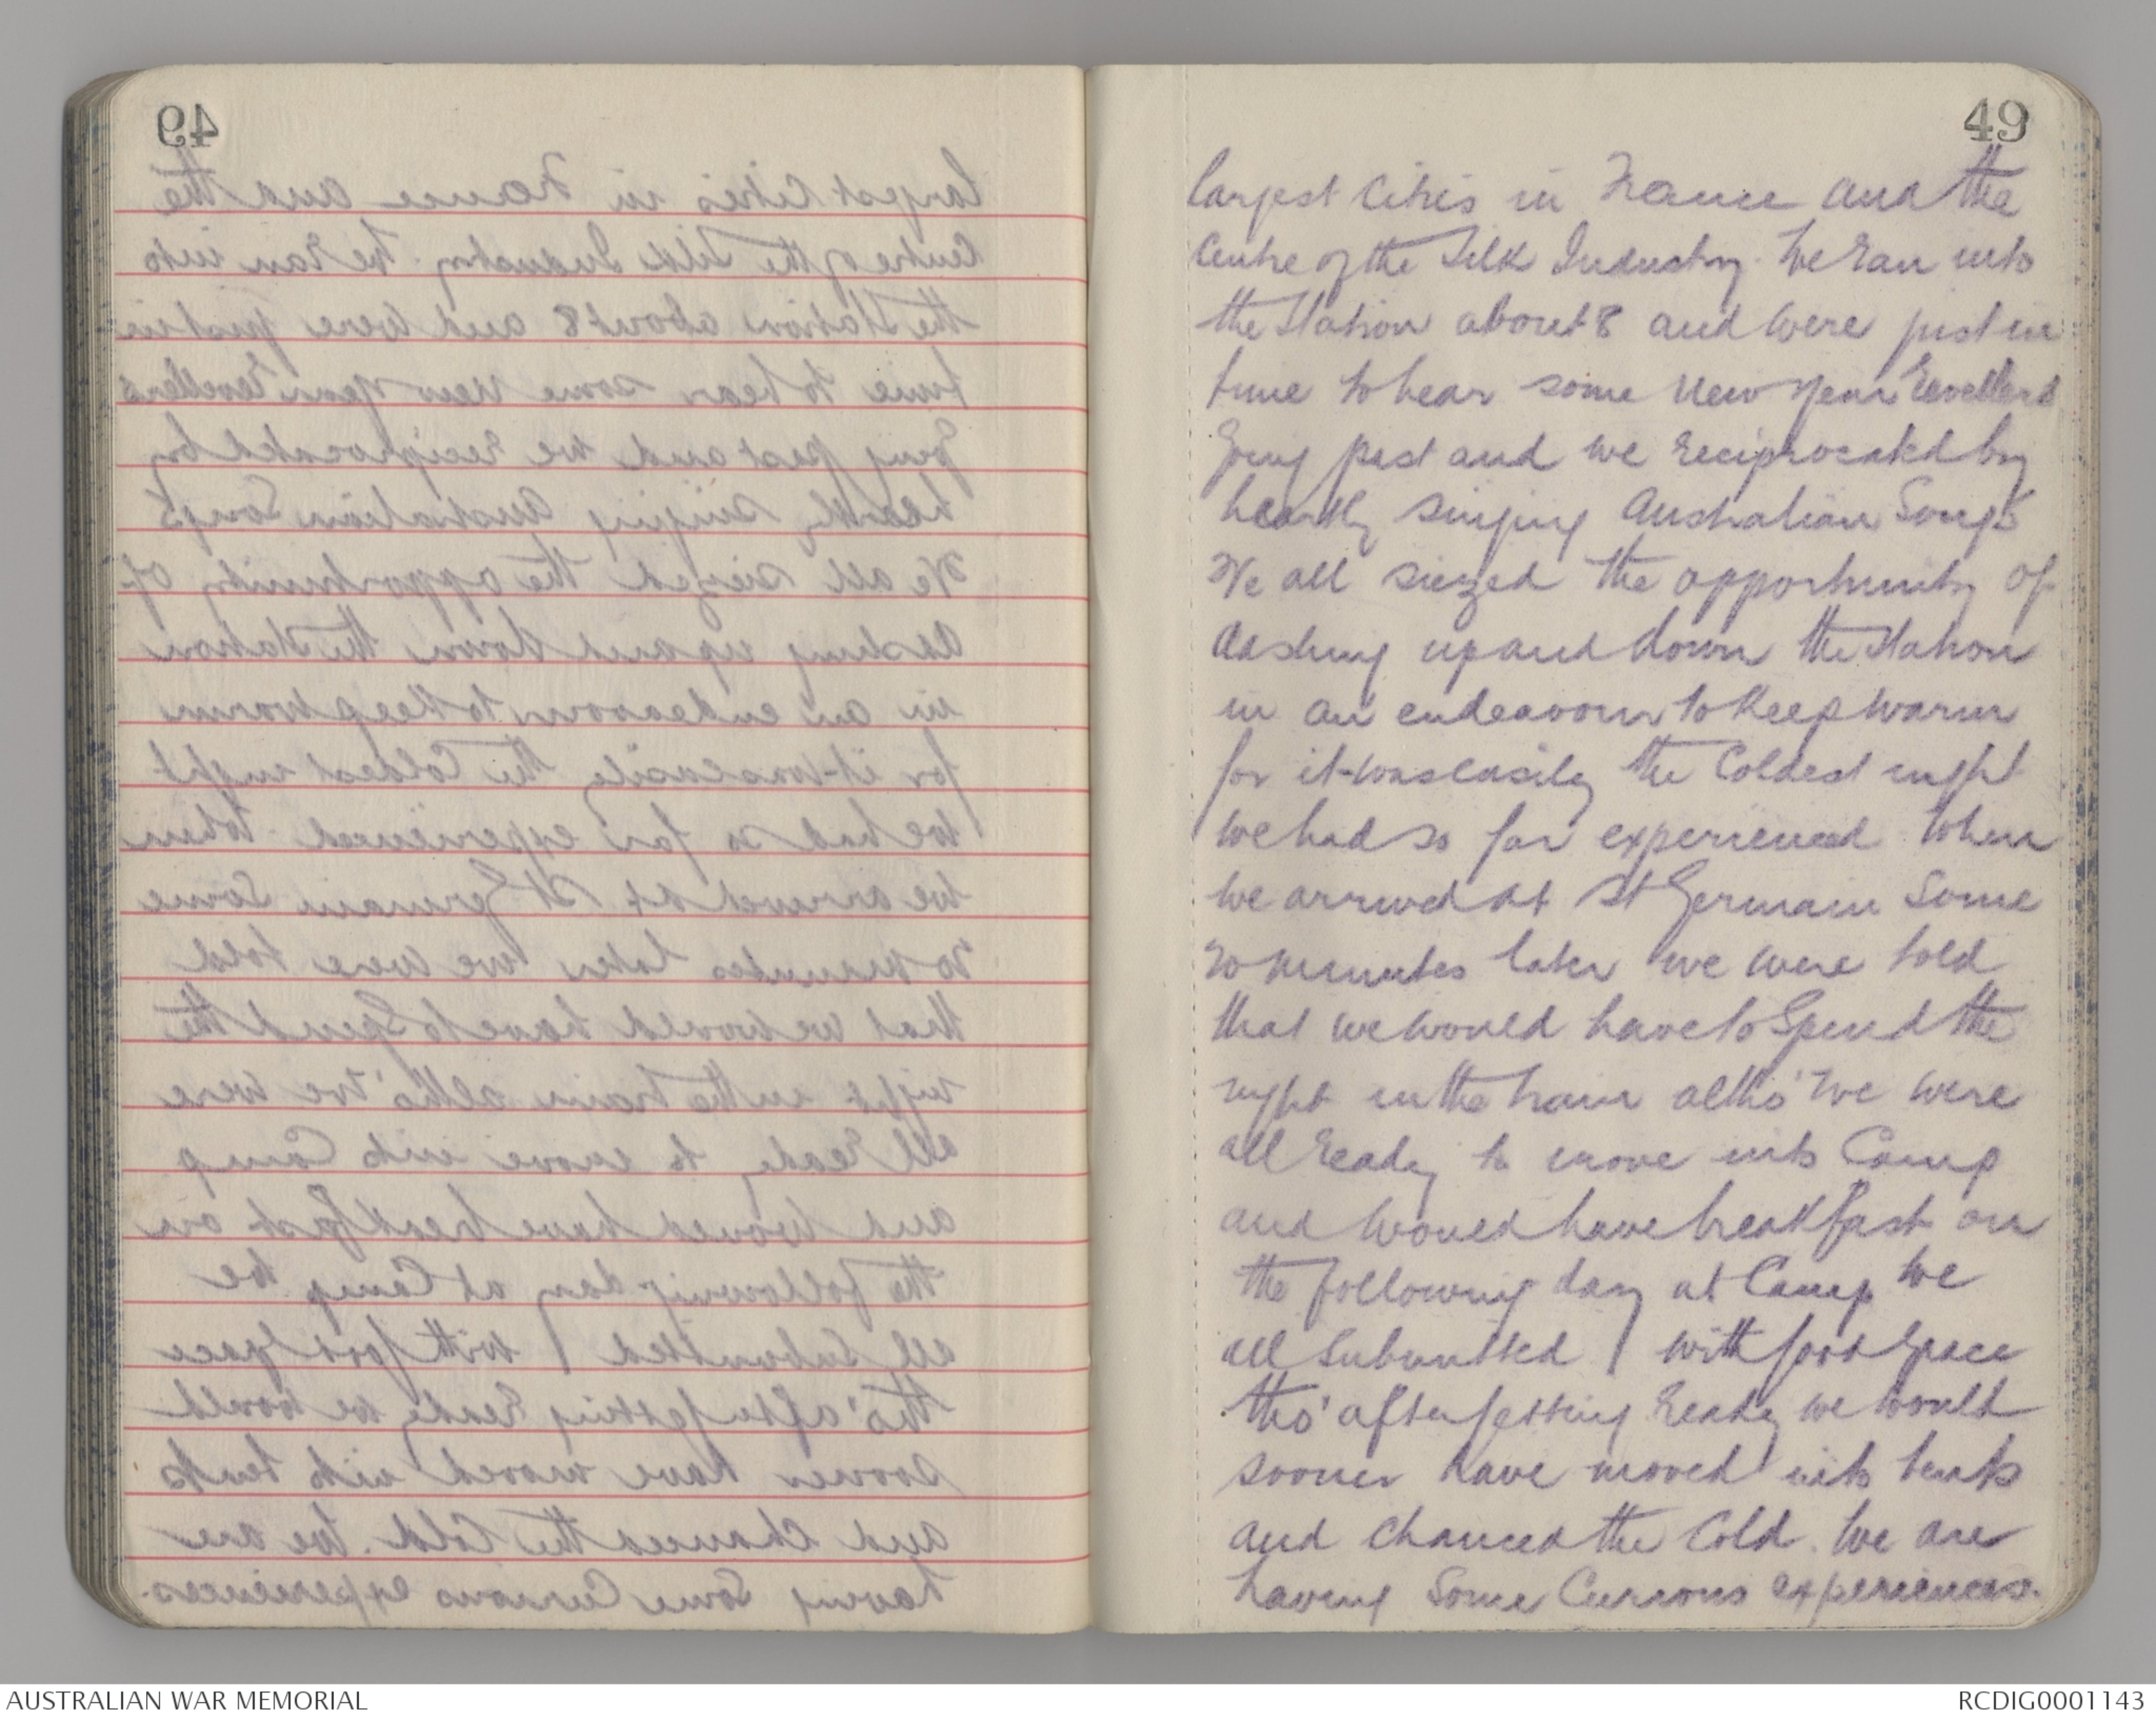 49
largest Cities in France and the
Centre of the Silk Industry. We ran into
the Station about 8 and were just in
time to hear some New Year revellers
going past and we reciprocated by
heartly singing Australian Songs
We all siezed the opportunity of
dashing up and down the Station
in an endeavour to keep warm
for it was easily the Coldest night
we had so far experienced when
we arrived at St Germain some
20 minutes later we were told
that we would have to Spend the
night in the train altho' we were
all ready to move into Camp
and would have breakfast on
the following day at Camp We
all submitted with good grace
tho' after getting ready we would
sooner have moved into tents
and chanced the Cold. We are
having Some Curious experiences.
AUSTRALIAN WAR MEMORIAL
RCDIG0001143